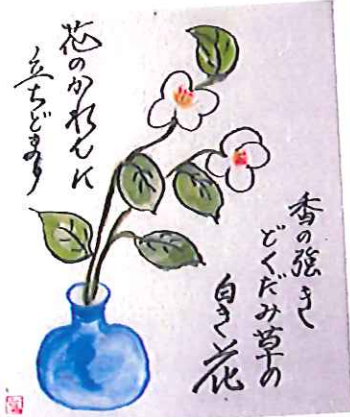 香の強き
どくだみ草の
白き花
花のかれんに
立ちどまり